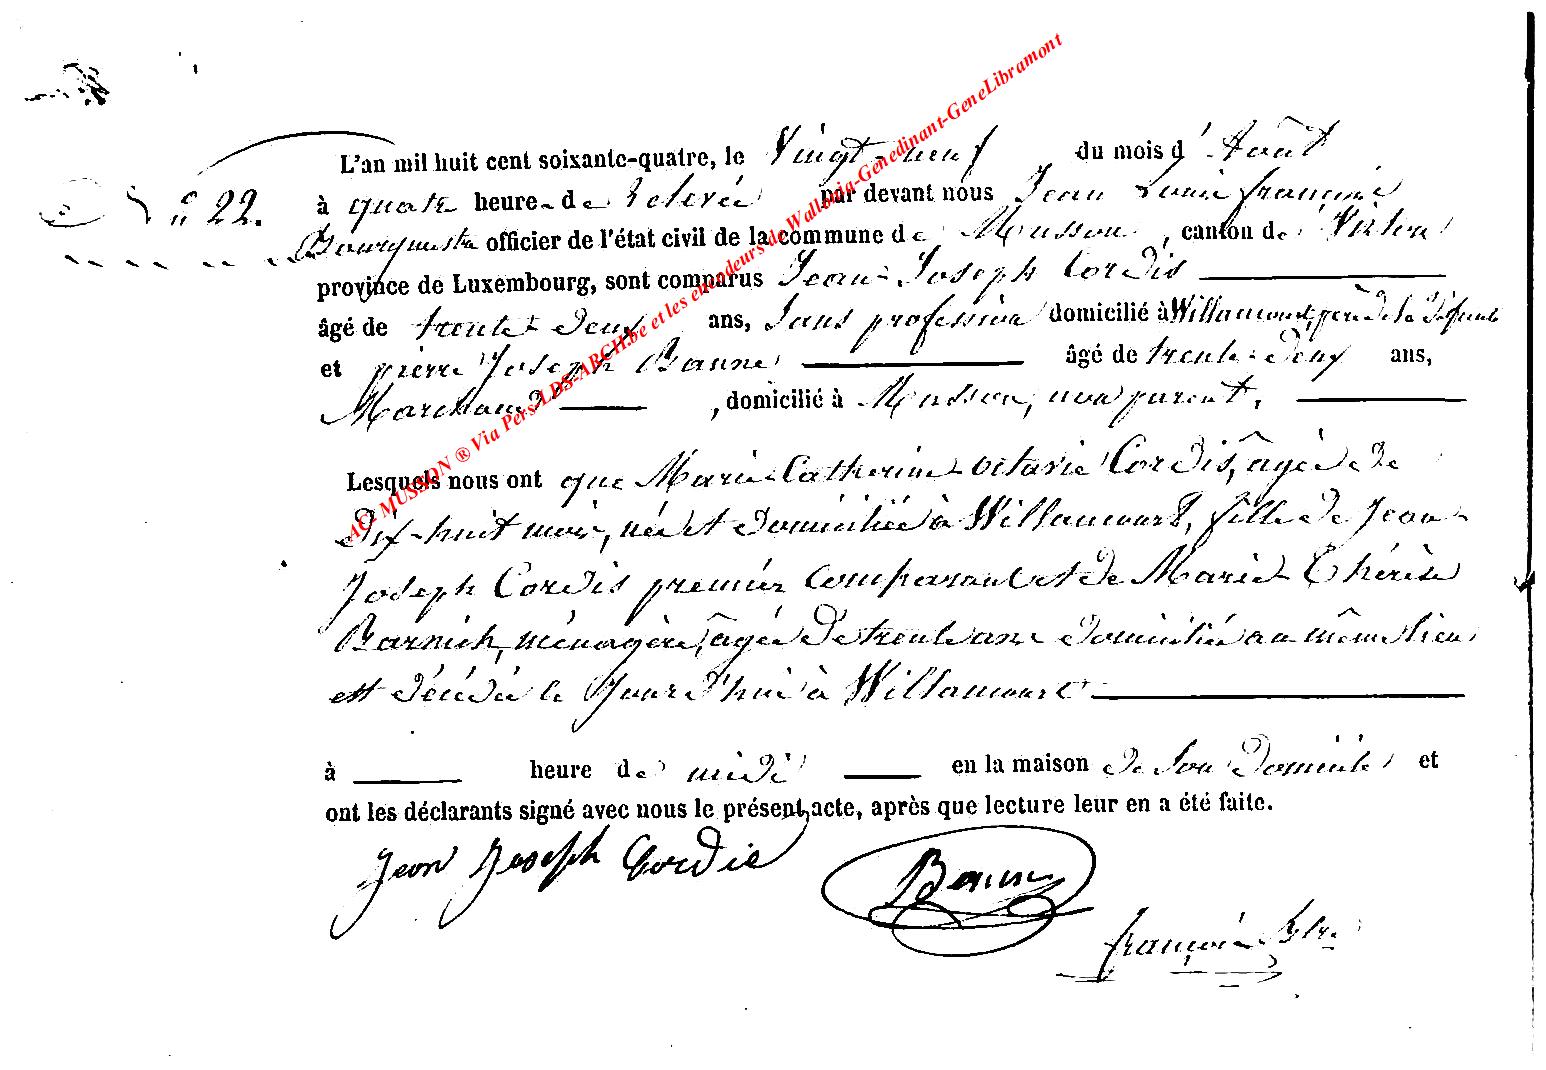 L'an mil huit cent soixante-quatre, le Vingt-neuf du mois d'Août
n° 22. à quatre heures de relevée par devant nous Jean Louis françois
Bourgmestre officier de l'état civil de la commune de Musson, canton de Virton
province de Luxembourg, sont comparus Jean-Joseph Cordis
âgé de trente-deux ans, Sans profession domicilié à Willancourt, père de la défunte
et pierre Joseph Baune âgé de trente-deux ans,
Marchand, domicilié à Musson, non parent,
Lesquels nous ont que Marie-Catherine-Octavie Cordis, âgée de
dix-huit mois, née et domiciliée à Willancourt, fille de Jean-
Joseph Cordis premier comparant et de Marie-Thérèse
Barnich, ménagère, âgée de trente ans domiciliée au même lieu
est décédée le Jourd'hui à Willancourt
à heure de midi en la maison de Son domicile et
ont les déclarants signé avec nous le présent acte, après que lecture leur en a été faite.
Jean Joseph Cordie Baune
françois
AC- MUSSON ® Via Pers-LDS-ARCH.be et les encodeurs de Wallonia-Genedinant-GeneLibramont